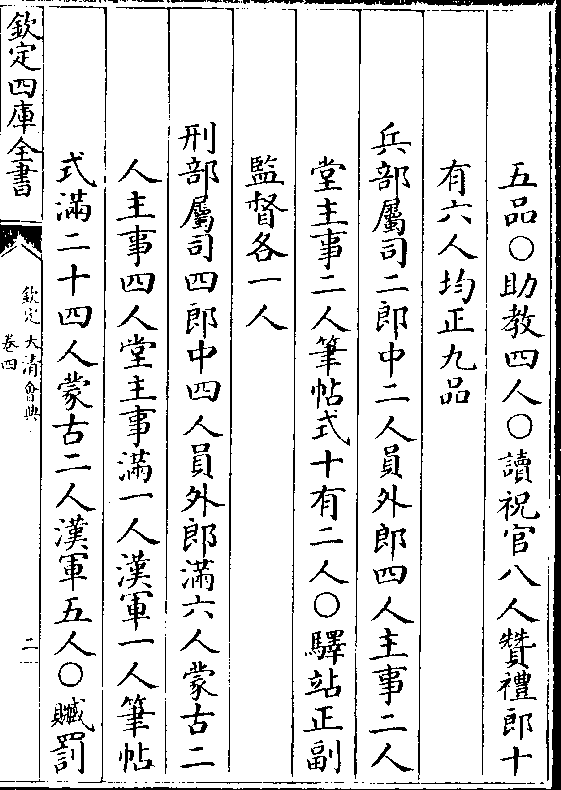 五品○助教四人○讀祝官八人贊禮郎十
有六人均正九品
兵部屬司二郎中二人員外郎四人主事二人
堂主事二人筆帖式十有二人○驛站正副
監督各一人
刑部屬司四郎中四人員外郎滿六人蒙古二
人主事四人堂主事滿一人漢軍一人筆帖
式滿二十四人蒙古二人漢軍五人○贓罰
欽定四庫全書
欽定大清會典
卷四
二